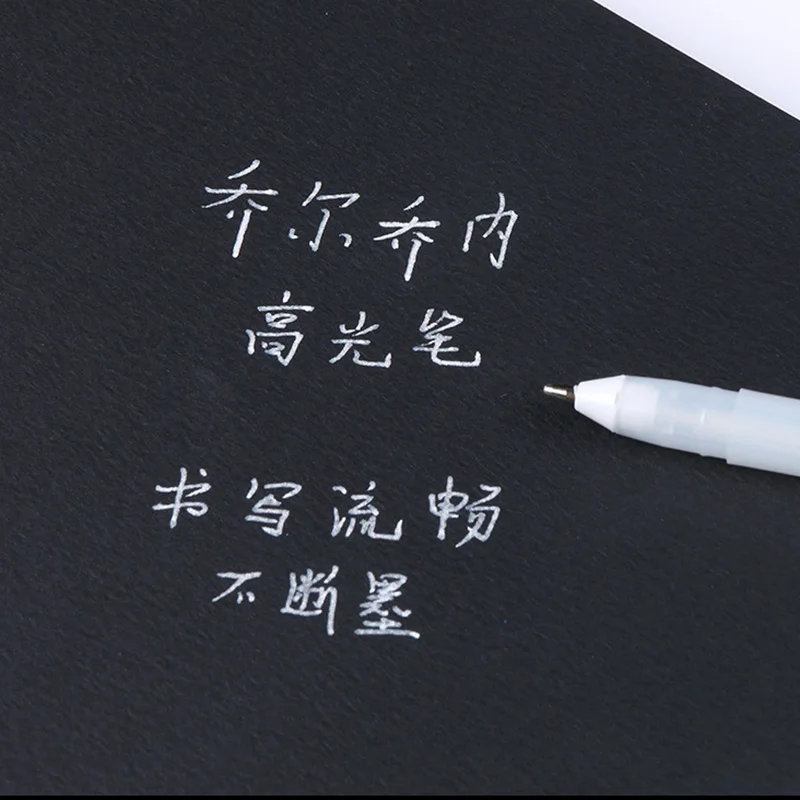 乔尔乔内
高光笔
书写流畅
不断墨